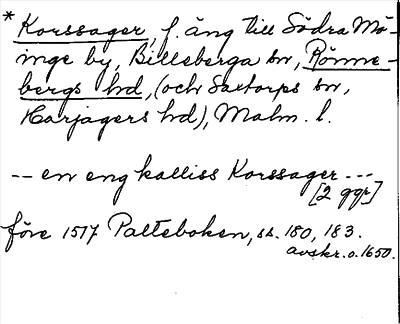 * Korssager, f. äng till Södra Mö-
inge by, Billeberga sn, Rönne-
bergs hd, (och Saxtorps sn,
Harjagers hd), Malm. l.
-- en eng kalliss Korssager ---
[2 ggr]
före 1517 Palteboken, ss. 180, 183.
avskr. o. 1650.